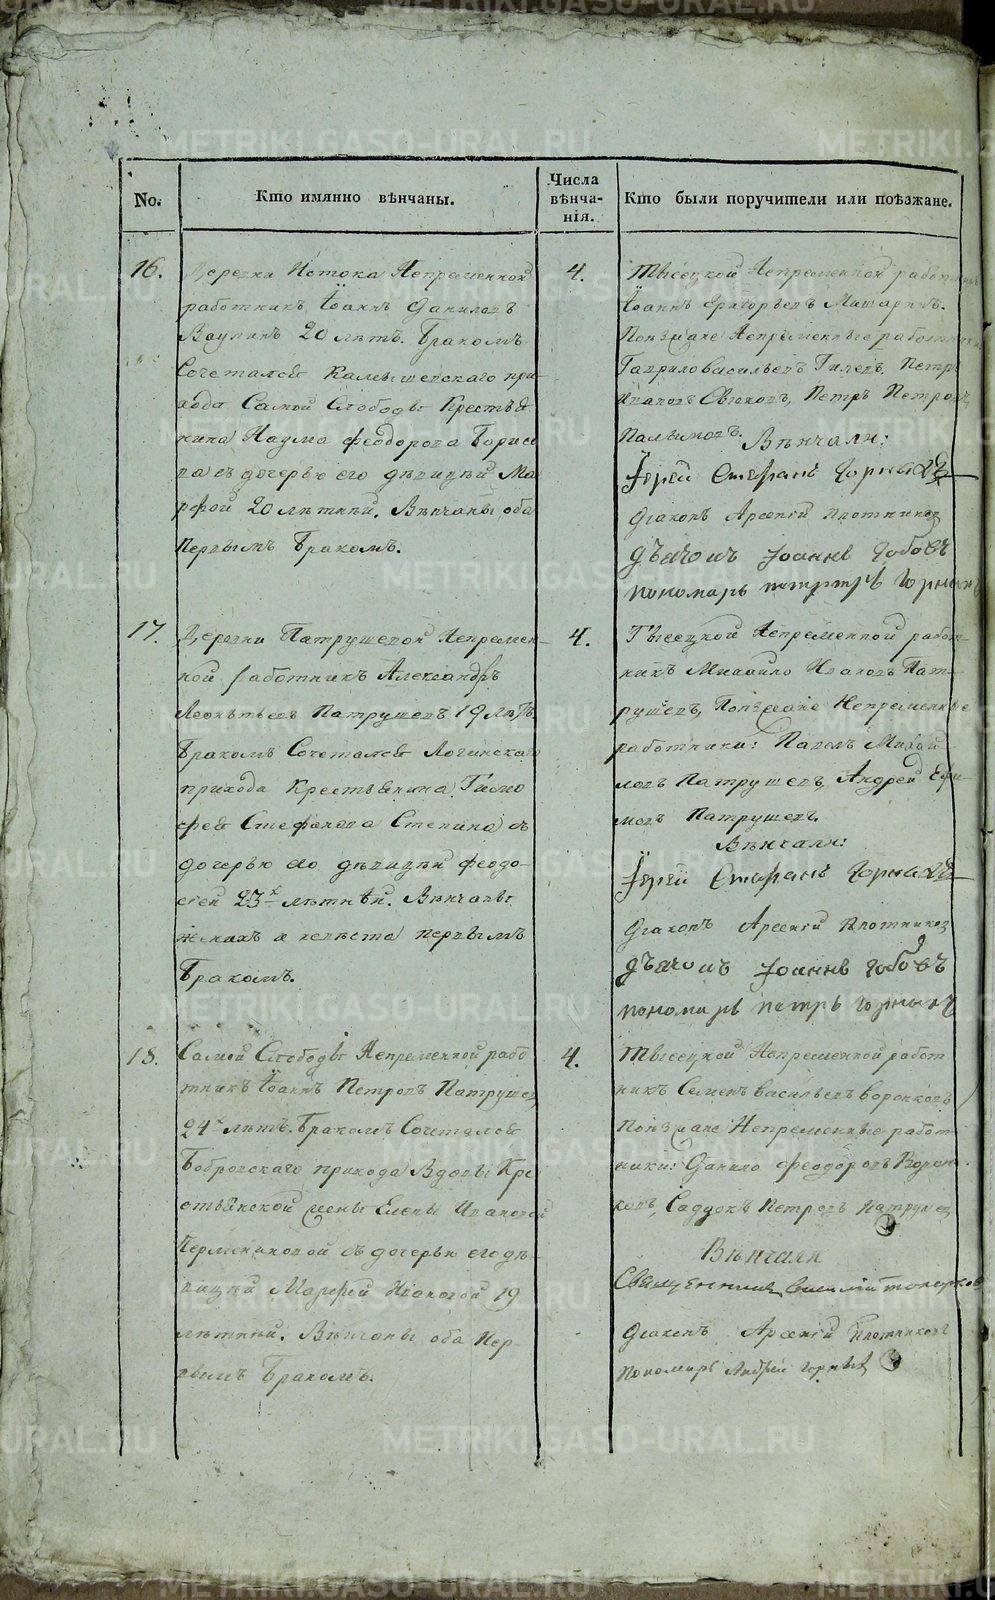 No.
Кто имянно вѣнчаны.
Числа
вѣнча-
нія.
Кто были поручители или поѣзжане.
16.
Деревни Истока Непременной
работникъ Іоаннъ Даниловъ
Ваулинъ 20 лѣтъ. Бракомъ
Сочетался Камышевскаго при-
хода Самой Слободы Крестья
нина Наума Феодорова Борисо
ва съ дочерью его дѣвицей Ма
рфой 20 лѣтней. Вѣнчаны оба
Первымъ Бракомъ.
4.
Тысецкой Непременной работникъ
Іоаннъ Григорьевъ
Поезжане Непременные работники
Гаврило Васильевъ Гилевъ, Петръ
Ивановъ Петръ Петровъ
Вѣнчали:
Іерей Стефанъ Горныхъ
Діаконъ Арсений Плотниковъ
Дьячокъ Іоаннъ
Пономарь Петръ Горныхъ
17.
Деревни Патрушевой Непремен-
ной работникъ Александръ
Леонтьевъ Патрушевъ 19 лѣтъ.
Бракомъ Сочетался Логиновскаго
прихода Крестьянина Тимо
фея Стефанова Степина съ
дочерью его дѣвицей Феодо-
сией 23х лѣтней. Вѣнчаны
женихъ и невѣста первымъ
Бракомъ.
4.
Тысецкой Непременной работ-
никъ Михайло Ивановъ Пат-
рушевъ, Поезжане Непременные
работники: Павелъ Михай
ловъ Патрушевъ, Андрей Ефи-
мовъ Патрушевъ.
Вѣнчали:
Іерей Стефанъ Горныхъ
Діаконъ Арсений Плотниковъ
Дьячокъ Іоаннъ
пономарь Петръ Горныхъ
18.
Самой Слободы Непременной рабо
тникъ Іоаннъ Петровъ Патрушевъ
24х лѣтъ. Бракомъ Сочетался
Бобровскаго прихода Вдовы Кре
стьянской жены Елены Ивановой
съ дочерью его дѣ-
вицей Марфой Ивановой 19
лѣтней. Вѣнчаны оба Пер-
вымъ Бракомъ.
4.
Тысецкой Непременной работ
никъ Семенъ Васильевъ Воронковъ
Поезжане Непременные работ
ники: Данило Феодоровъ Ворон-
ковъ, Садокъ Петровъ Патрушев
Вѣнчали
Священникъ Василій Топорковъ
Діаконъ Арсений Плотниковъ
Пономарь Андрей Горныхъ
METRIKI.GASO-URAL.RU